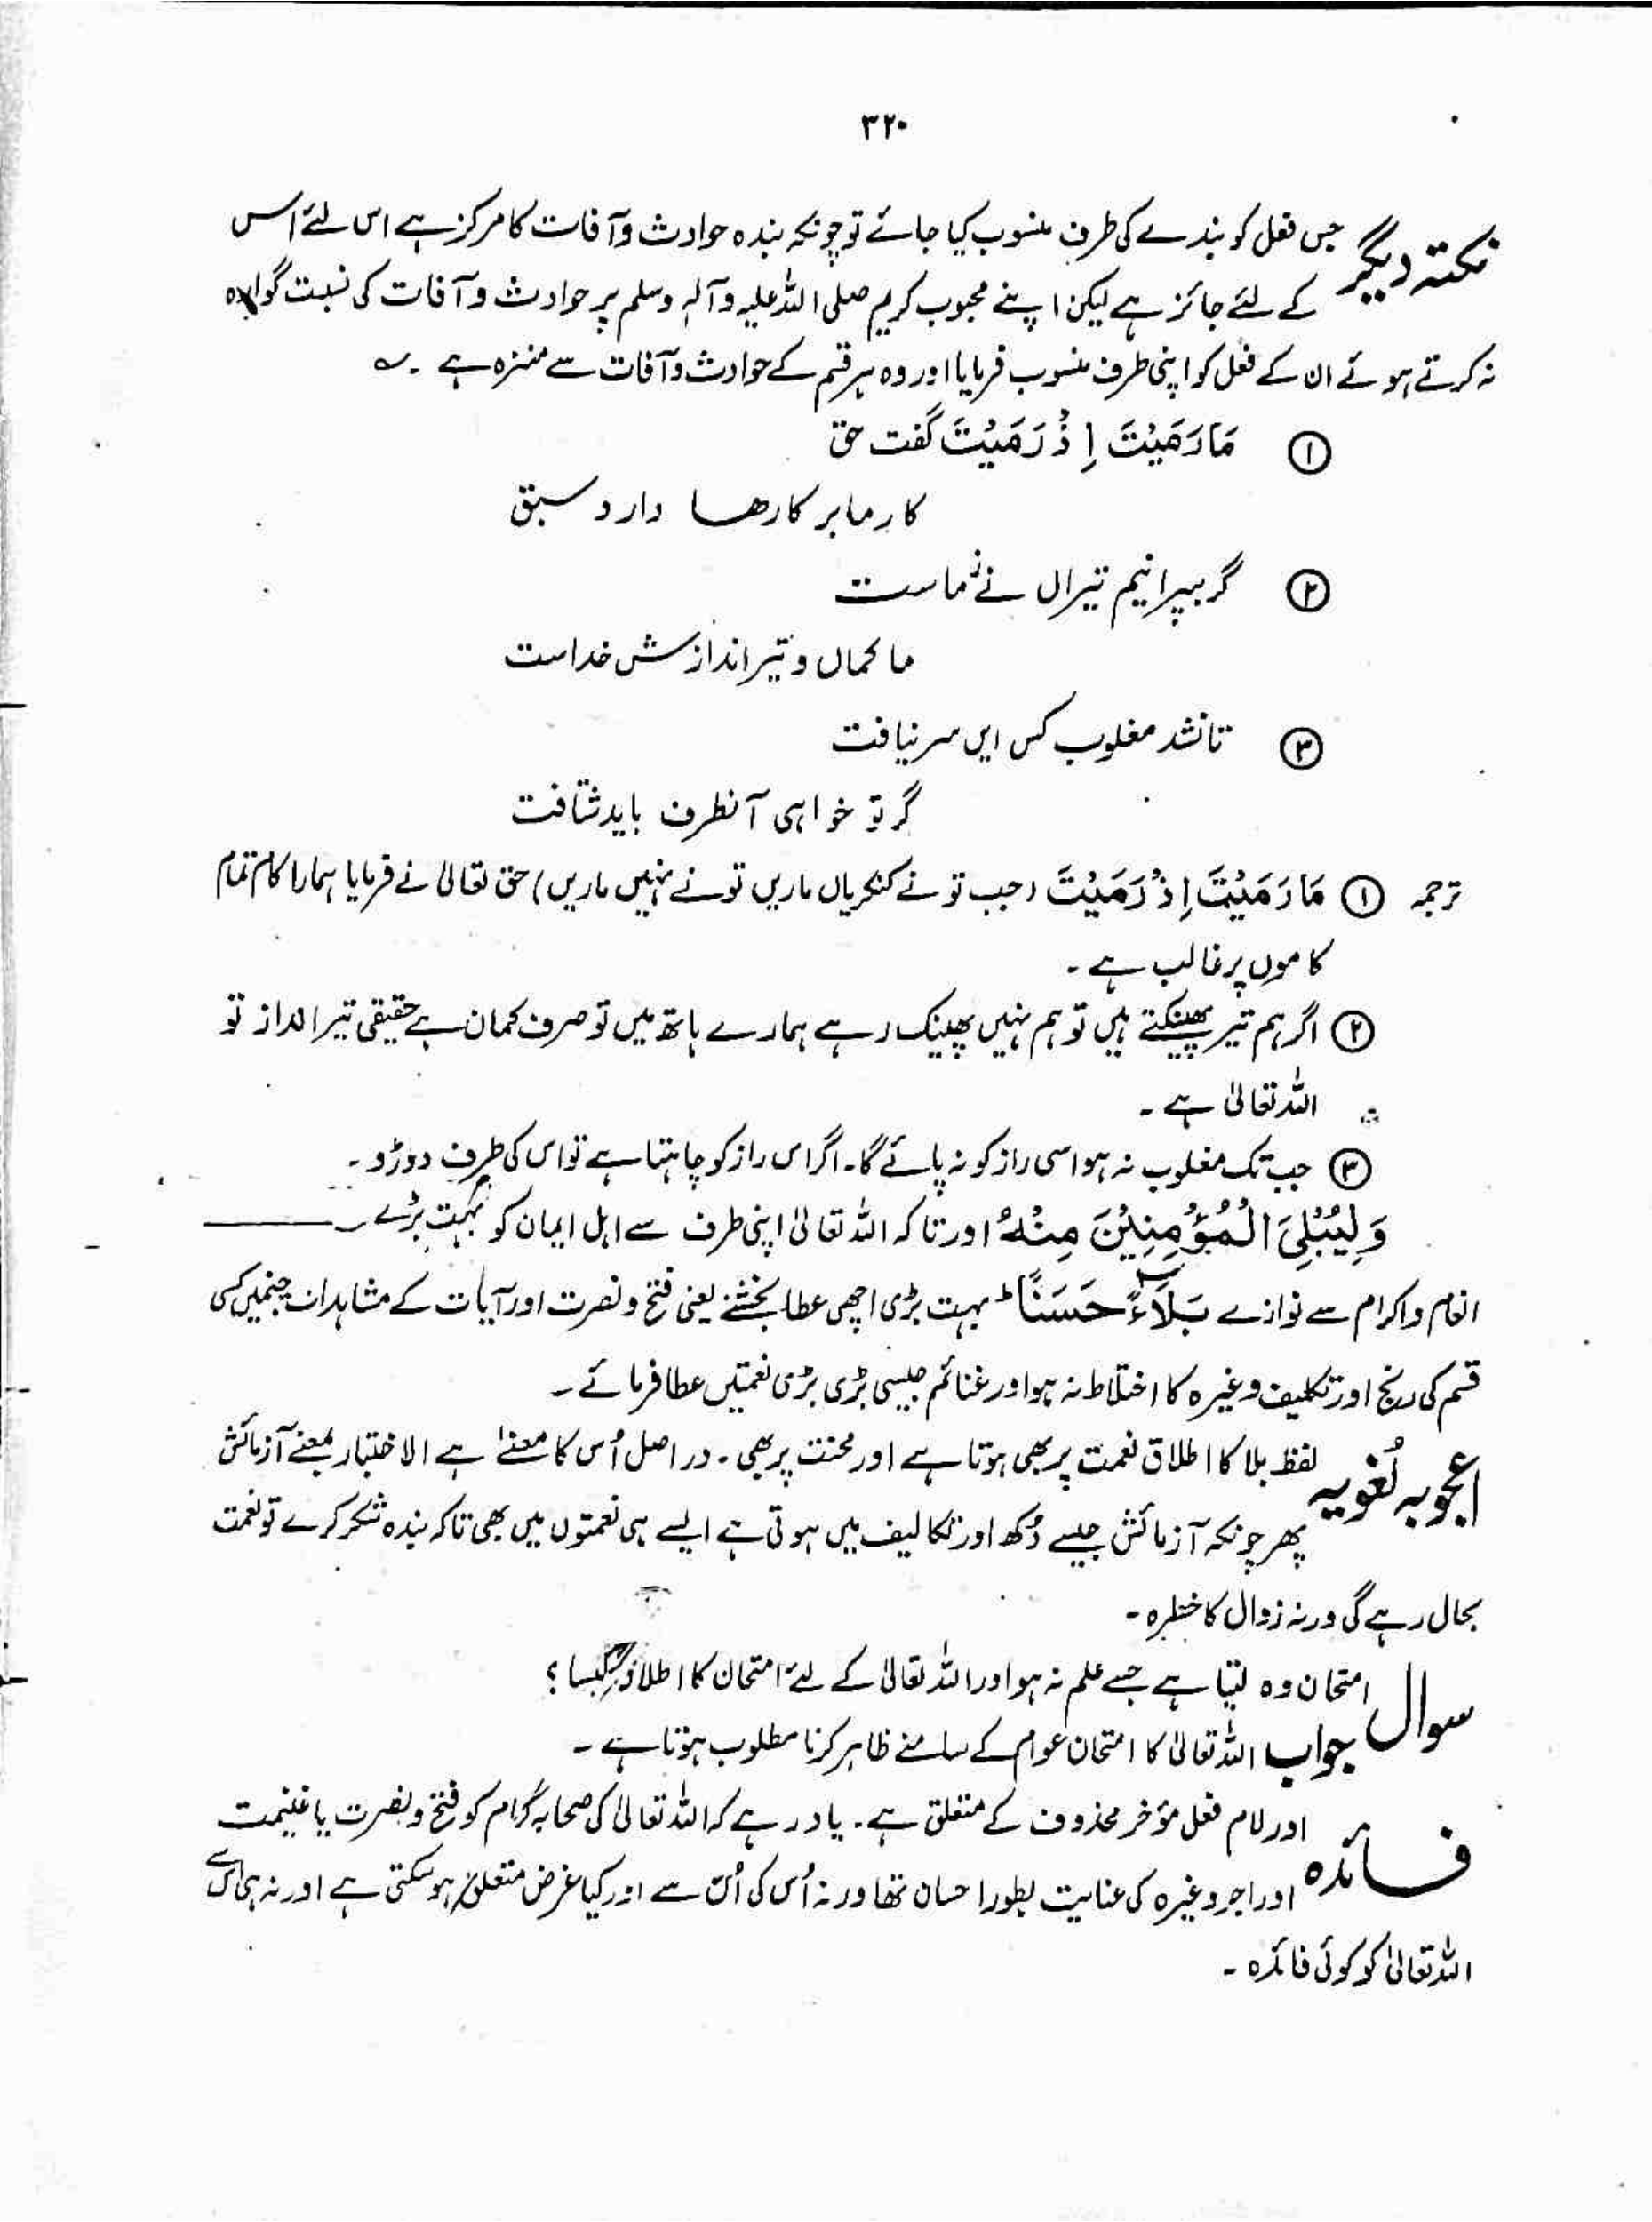 ۳۲۰
نکتہ دیگر جس فعل کو بندے کی طرف منسوب کیا جائے تو چونکہ بندہ حوادث و آفات کا مرکز ہے اس لئے اس
کے لئے جائز ہے لیکن اپنے محبوب کریم صلی اللہ علیہ وآلہ وسلم پر حوادث و آفات کی نسبت گوارہ
نہ کرتے ہوئے ان کے فعل کو اپنی طرف منسوب فرمایا اور وہ ہر قسم کے حوادث و آفات سے منزہ ہے ۔
① مَا رَمَیْتَ اِذْ رَمَیْتَ گفت حق
کار ما بر کارھا دارد سبق
② گر بپرانیم تیر آں نے زماست
ما کماں و تیر اندازش خداست
③ تا نشد مغلوب کس ایں سر نیافت
گر تو خواہی آنطرف باید شتافت
ترجمہ ① مَا رَمَیْتَ اِذْ رَمَیْتَ (جب تو نے کنکریاں ماریں تو نے نہیں ماریں) حق تعالیٰ نے فرمایا ہمارا کام تمام
کاموں پر غالب ہے ۔
② اگر ہم تیر پھینکتے ہیں تو ہم نہیں پھینک رہے ہمارے ہاتھ میں تو صرف کمان ہے حقیقی تیر انداز تو
اللہ تعالیٰ ہے ۔
③ جب تک مغلوب نہ ہو اسی راز کو نہ پائے گا۔ اگر اس راز کو چاہتا ہے تو اس کی طرف دوڑو ۔
وَ لِیُبْلِیَ الْمُؤْمِنِیْنَ مِنْہُ اور تاکہ اللہ تعالیٰ اپنی طرف سے اہل ایمان کو بہت بڑے
انعام و اکرام سے نوازے بَلَآءً حَسَنًا ؕ بہت بڑی اچھی عطا بخشے یعنی فتح و نصرت اور آیات کے مشاہدات جنمیں کسی
قسم کی رنج اور تکلیف وغیرہ کا اختلاط نہ ہو اور غنائم جیسی بڑی بڑی نعمتیں عطا فرمائے ۔
اعجوبہ لُغویہ لفظ بلا کا اطلاق نعمت پر بھی ہوتا ہے اور محنت پر بھی ۔ در اصل اُس کا معنےٰ ہے الاختبار بمعنے آزمائش
پھر چونکہ آزمائش جیسے دُکھ اور تکالیف میں ہوتی ہے ایسے ہی نعمتوں میں بھی تاکہ بندہ شکر کرے تو نعمت
بحال رہے گی ورنہ زوال کا خطرہ ۔
سوال امتحان وہ لیتا ہے جسے علم نہ ہو اور اللہ تعالیٰ کے لئے امتحان کا اطلاق کیسا ؟
جواب اللہ تعالیٰ کا امتحان عوام کے سامنے ظاہر کرنا مطلوب ہوتا ہے ۔
فائدہ اور لام فعل مؤخر محذوف کے متعلق ہے۔ یاد رہے کہ اللہ تعالیٰ کی صحابہ کرام کو فتح و نصرت یا غنیمت
اور اجر وغیرہ کی عنایت بطور احسان تھا ورنہ اُس کی اُن سے اور کیا غرض متعلق ہو سکتی ہے اور نہ ہی اس سے
اللہ تعالیٰ کو کوئی فائدہ ۔